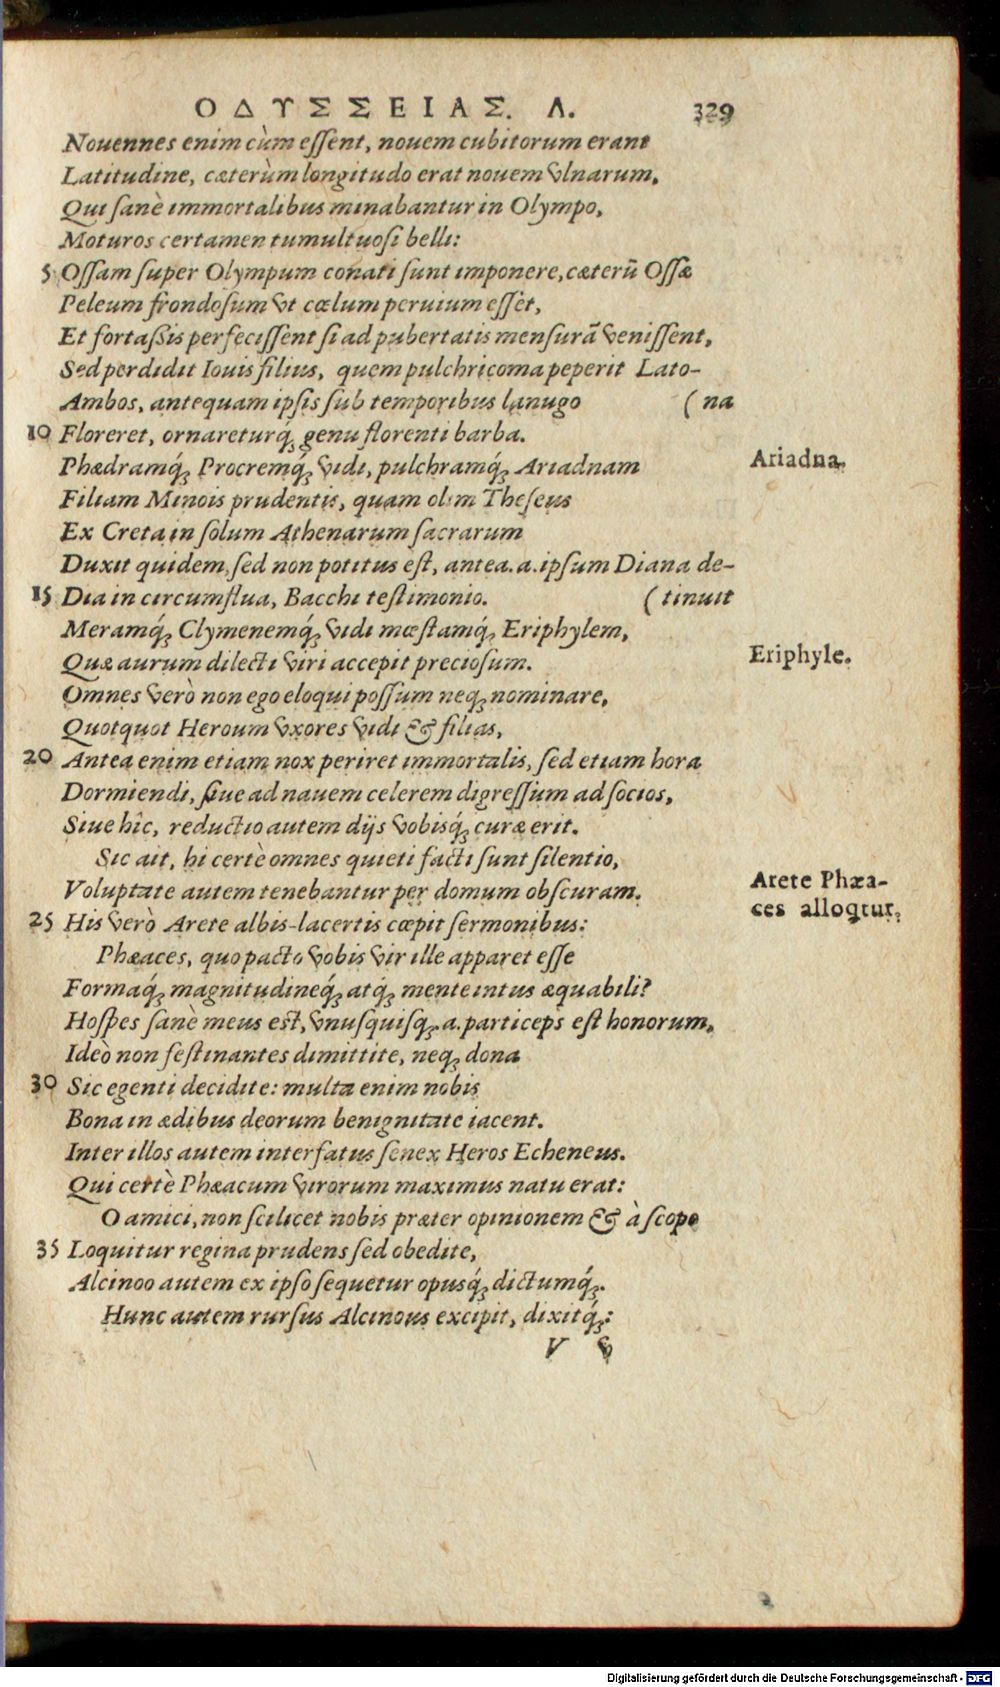 ΟΔΥΣΣΕΙΑΣ. Λ. 329
Nouennes enim cùm eſſent, nouem cubitorum erant
Latitudine, cæterùm longitudo erat nouem vlnarum,
Qui ſanè immortalibus minabantur in Olympo,
Moturos certamen tumultuoſi belli:
5 Oſſam ſuper Olympum conati ſunt imponere, cæterũ Oſſæ
Peleum frondoſum vt cœlum peruium eſſet,
Et fortaßis perfeciſſent ſi ad pubertatis menſurã veniſſent,
Sed perdidit Iouis filius, quem pulchricoma peperit Lato-
Ambos, antequam ipſis ſub temporibus lanugo (na
10 Floreret, ornareturq́; genu florenti barba.
Phædramq́; Procremq́; vidi, pulchramq́; Ariadnam
Ariadna.
Filiam Minois prudentis, quam olim Theſeus
Ex Creta in ſolum Athenarum ſacrarum
Duxit quidem, ſed non potitus eſt, antea. a. ipſum Diana de-
15 Dia in circumflua, Bacchi teſtimonio. (tinuit
Meramq́; Clymenemq́; vidi mœſtamq́; Eriphylem,
Eriphyle.
Quæ aurum dilecti viri accepit precioſum.
Omnes verò non ego eloqui poſſum neq; nominare,
Quotquot Heroum vxores vidi & filias,
20 Antea enim etiam nox periret immortalis, ſed etiam hora
Dormiendi, ſiue ad nauem celerem digreſſium ad ſocios,
Siue hîc, reductio autem dijs vobisq́; curæ erit.
Sic ait, hi certè omnes quieti facti ſunt ſilentio,
Voluptate autem tenebantur per domum obſcuram.
Arete Phæa-
ces alloqtur.
25 His verò Arete albis-lacertis cœpit ſermonibus:
Phæaces, quo pacto vobis vir ille apparet eſſe
Formaq́; magnitudineq́; atq́; mente intus æquabili?
Hoſpes ſanè meus est, vnuſquiſq;. a. particeps eſt honorum,
Ideò non feſtinantes dimittite, neq; dona
30 Sic egenti decidite: multa enim nobis
Bona in ædibus deorum benignitate iacent.
Inter illos autem interfatus ſenex Heros Echeneus.
Qui certè Phæacum virorum maximus natu erat:
O amici, non ſcilicet nobis præter opinionem & à ſcopo
35 Loquitur regina prudens ſed obedite,
Alcinoo autem ex ipſo ſequetur opusq́; dictumq́;.
Hunc autem rurſus Alcinous excipit, dixitq́;:
V v
Digitalisierung gefördert durch die Deutsche Forschungsgemeinschaft - DFG